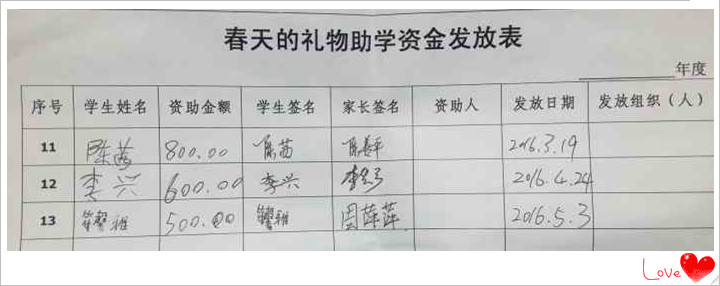 春天的礼物助学资金发放表
年度
序号 学生姓名 资助金额 学生签名 家长签名 资助人 发放日期 发放组织（人）
11 陈茜 800.00 陈茜 2016.3.19
12 李兴 600.00 李兴 2016.4.24
13 500.00 周萍萍 2016.5.3
Love